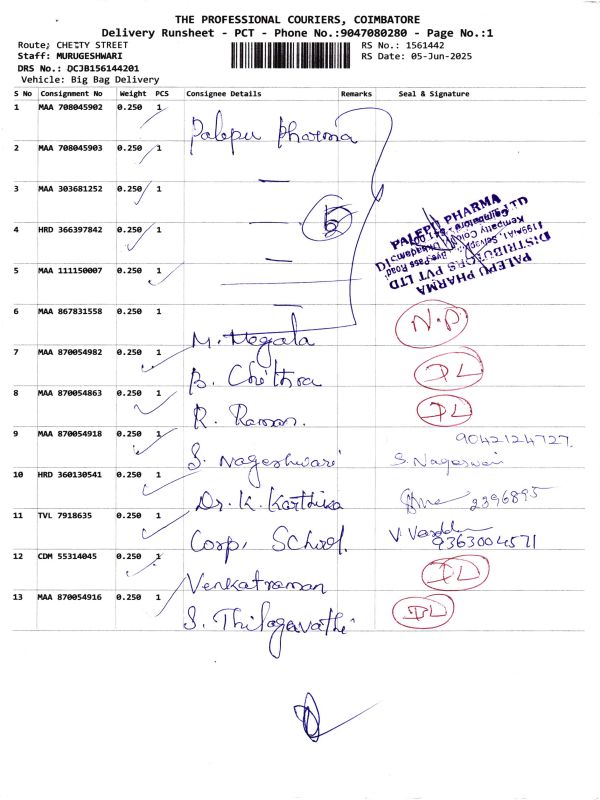 THE PROFESSIONAL COURIERS, COIMBATORE
Delivery Runsheet - PCT - Phone No.:9047080280 - Page No.:1
Route: CHETTY STREET
Staff: MURUGESHWARI
DRS No.: DCJB156144201
Vehicle: Big Bag Delivery
RS No.: 1561442
RS Date: 05-Jun-2025
S No Consignment No Weight PCS Consignee Details Remarks Seal & Signature
1 MAA 708045902 0.250 1 Palepu Pharma
2 MAA 708045903 0.250 1
3 MAA 303681252 0.250 1 —
4 HRD 366397842 0.250 1 — 5
5 MAA 111150007 0.250 1 —
PALEPU PHARMA
DISTRIBUTORS PVT LTD
6 MAA 867831558 0.250 1 M. Megala N.P
7 MAA 870054982 0.250 1 B. Chethra DL
8 MAA 870054863 0.250 1 R. Raman. DL
9 MAA 870054918 0.250 1 S. Nageshwari 9042124727. S. Nageswari
10 HRD 360130541 0.250 1 Dr. K. Karthika 2396895
11 TVL 7918635 0.250 1 Corp. School. 9363004571
12 CDM 55314045 0.250 1 Venkatraman DL
13 MAA 870054916 0.250 1 S. Thilagavathi DL